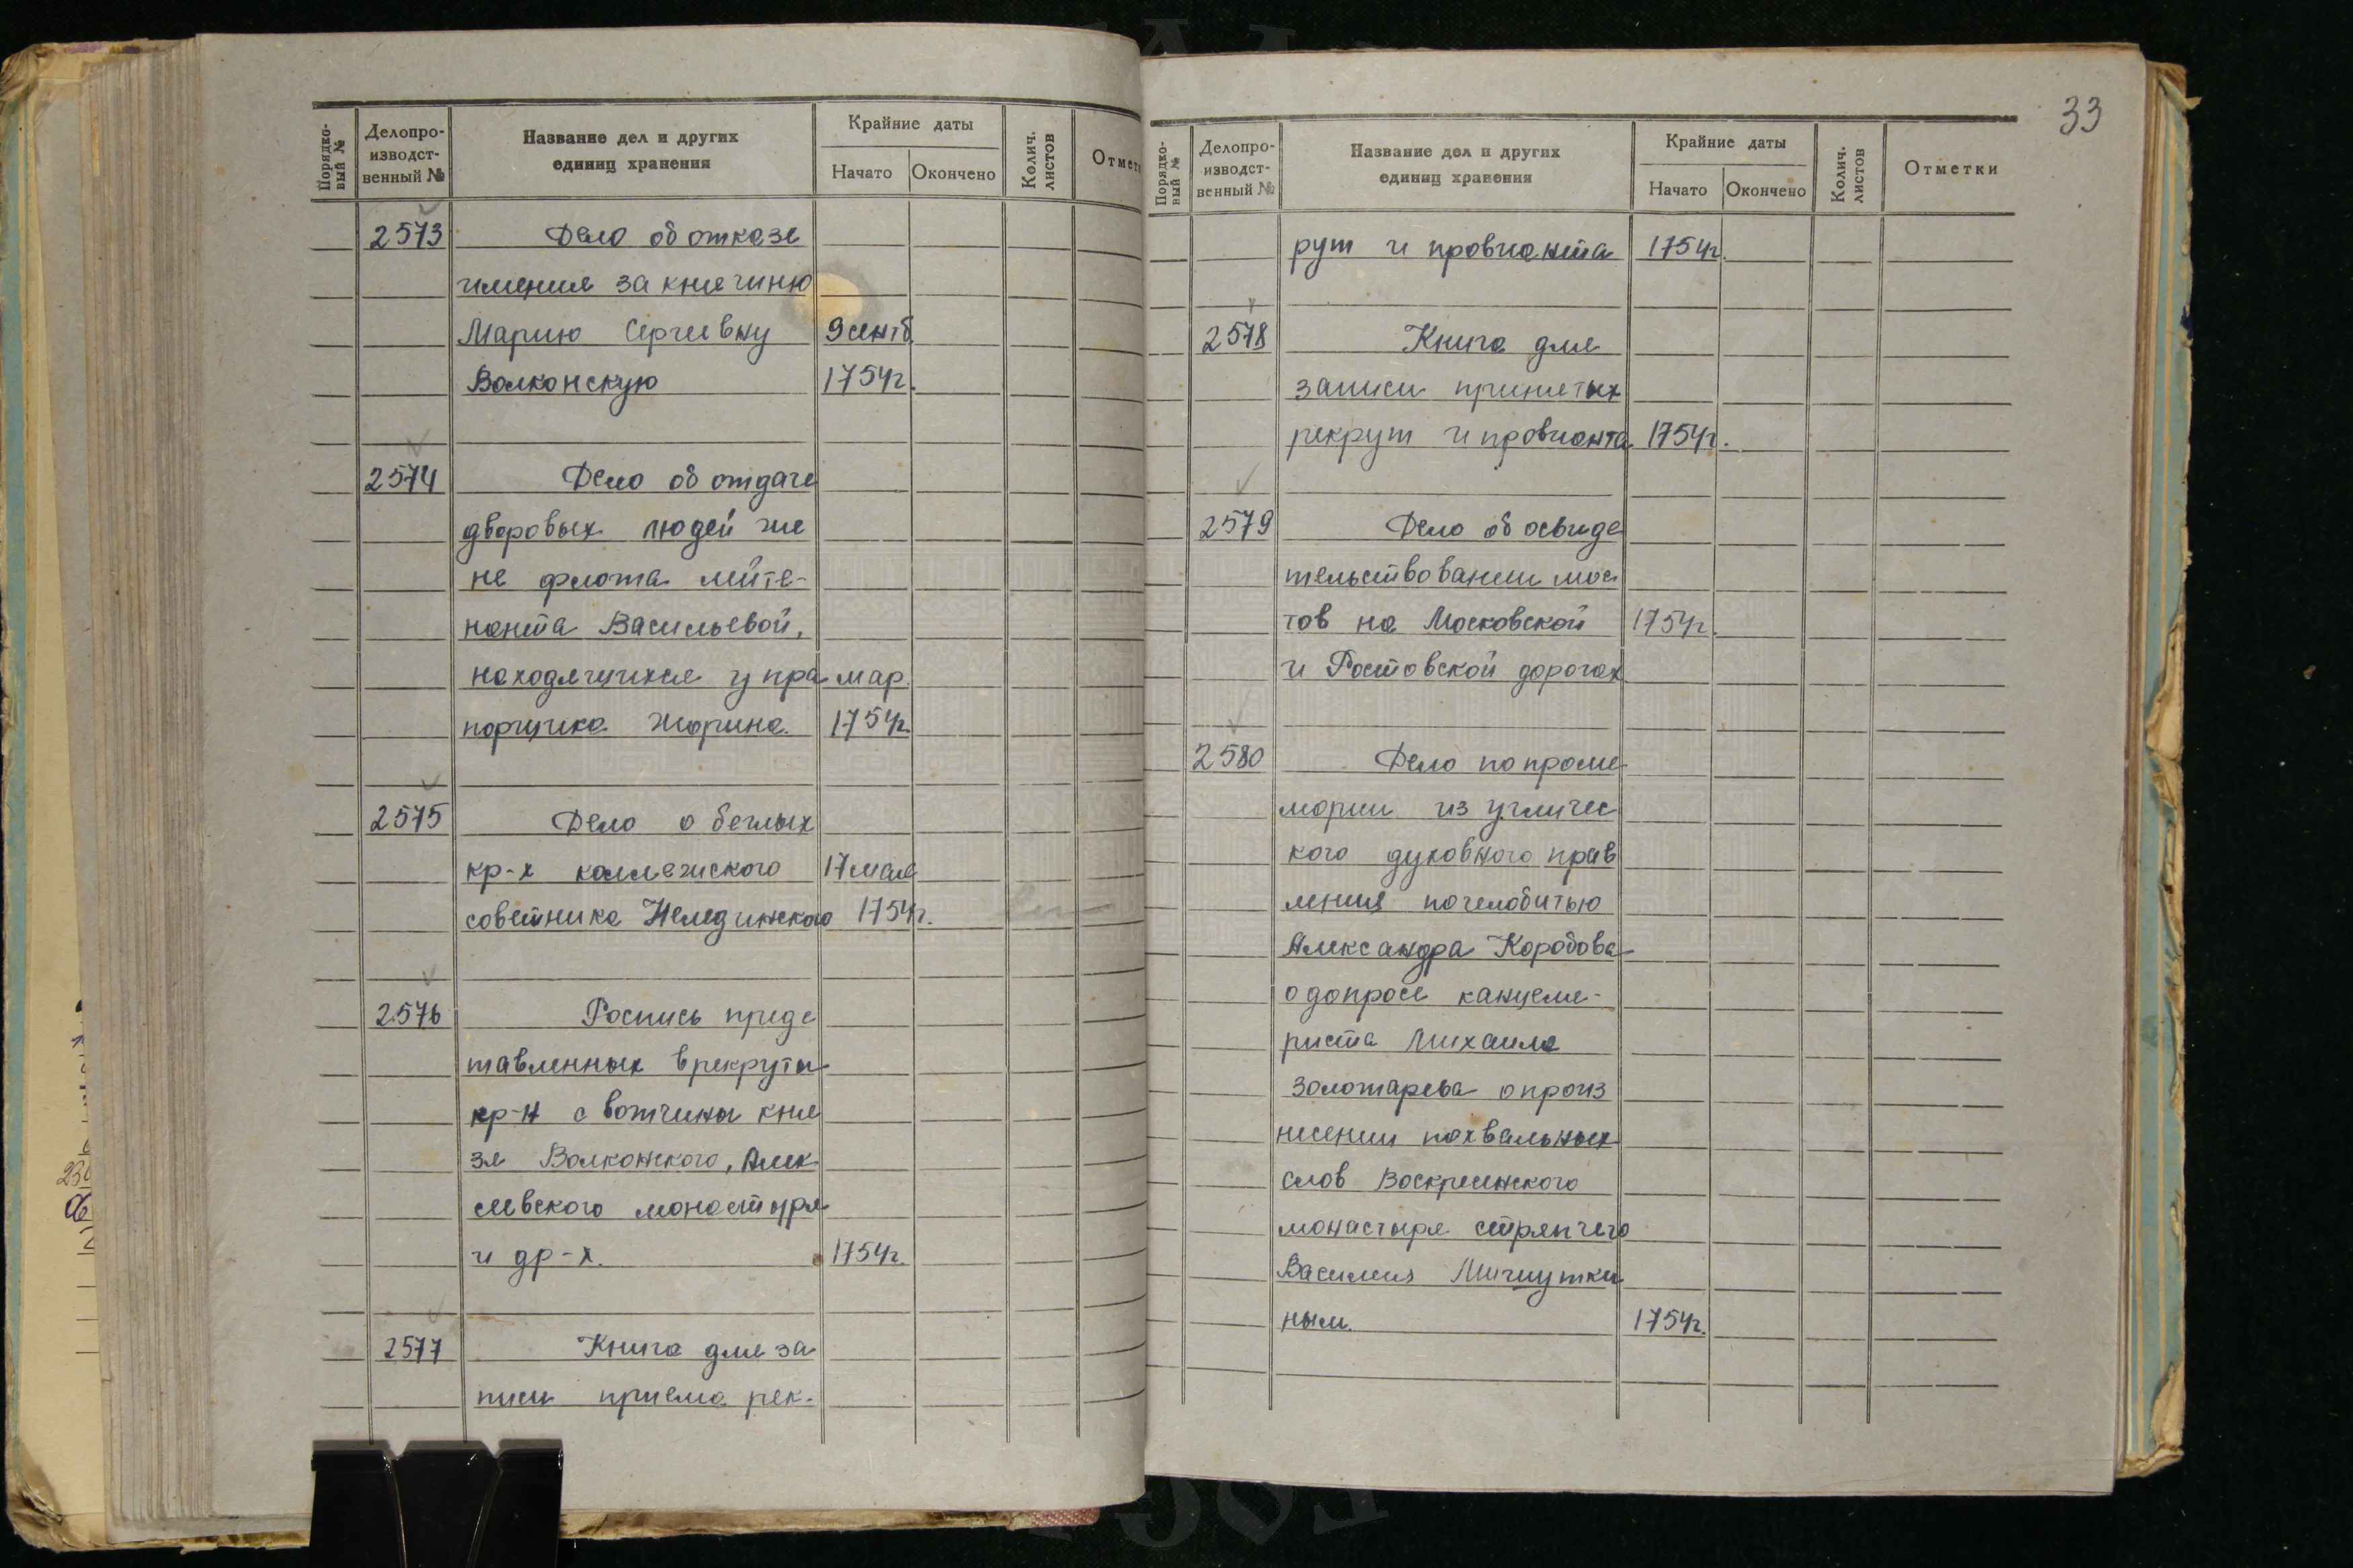 33
Порядко-
вый №
Делопро-
изводст-
венный №
Название дел и других
единиц хранения
Крайние даты
Начато
Окончено
Колич.
листов
Отмет
2573 Дело об отказе
имения за княгиню
Марию Сергеевну 9 сентб.
Волконскую 1754г.
2574 Дело об отдаче
дворовых людей же
не флота лейте-
нанта Васильевой,
находящихся у пра мар.
порщика Жорина. 1754г.
2575 Дело о беглых
кр-х коллежского 17 мая
советника Нелединского 1754г.
2576 Роспись предс
тавленных в рекруты
кр-н с вотчины кня
зя Волконского, Алек
сеевского монастыря
и др-х. 1754г.
2577 Книга для за
писи приема рек-
Порядко-
вый №
Делопро-
изводст-
венный №
Название дел и других
единиц хранения
Крайние даты
Начато
Окончено
Колич.
листов
Отметки
рут и провианта 1754г.
2578 Книга для
записи принятых
рекрут и провианта 1754г.
2579 Дело об освиде
тельствовании мос
тов на Московской 1754г.
и Ростовской дорогах
2580 Дело по проме
мории из угличес
кого духовного прав
ления по челобитью
Александра Коробова
о допросе канцеля-
риста Михаила
Золотарева о произ
несении похвальных
слов Воскресенского
монастыря стряпчего
Василия Мичуткиным
ным. 1754г.